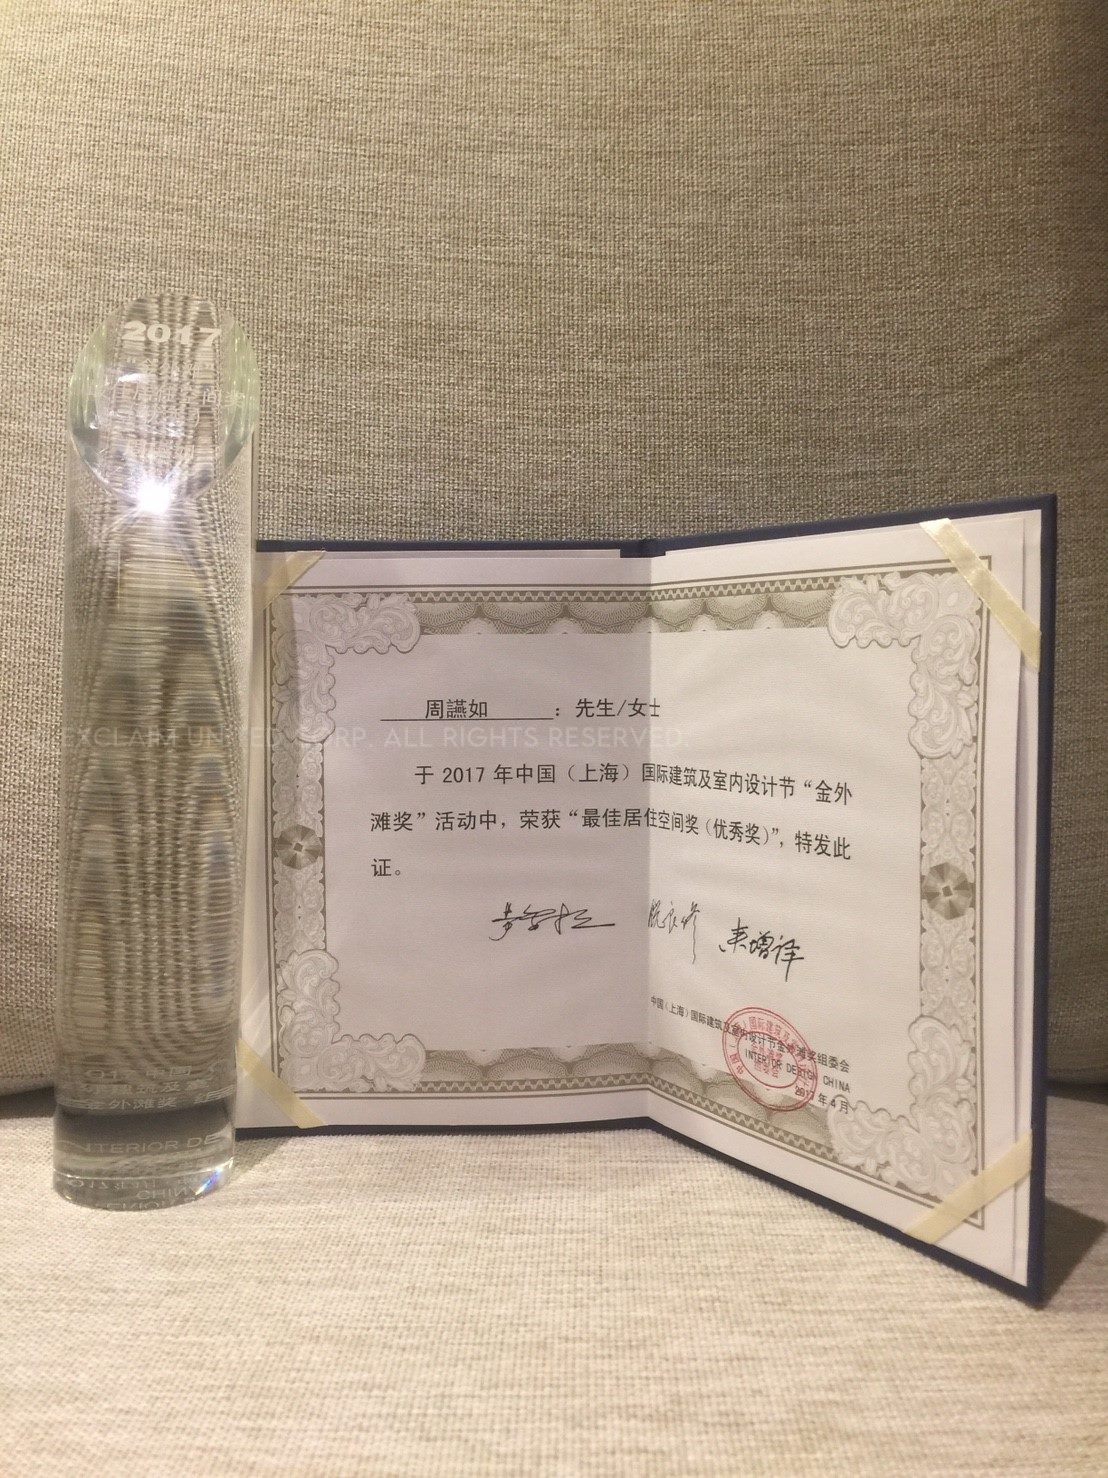 2017
周讌如 ：先生/女士
EXCLAIM UNITED CORP. ALL RIGHTS RESERVED.
于 2017 年中国（上海）国际建筑及室内设计节“金外
滩奖”活动中，荣获“最佳居住空间奖（优秀奖）”，特发此
证。
中国（上海）国际建筑及室内设计节金外滩奖组委会
INTERIOR DESIGN CHINA
2017 年 4 月
外滩奖
INTERIOR DE
CHINA